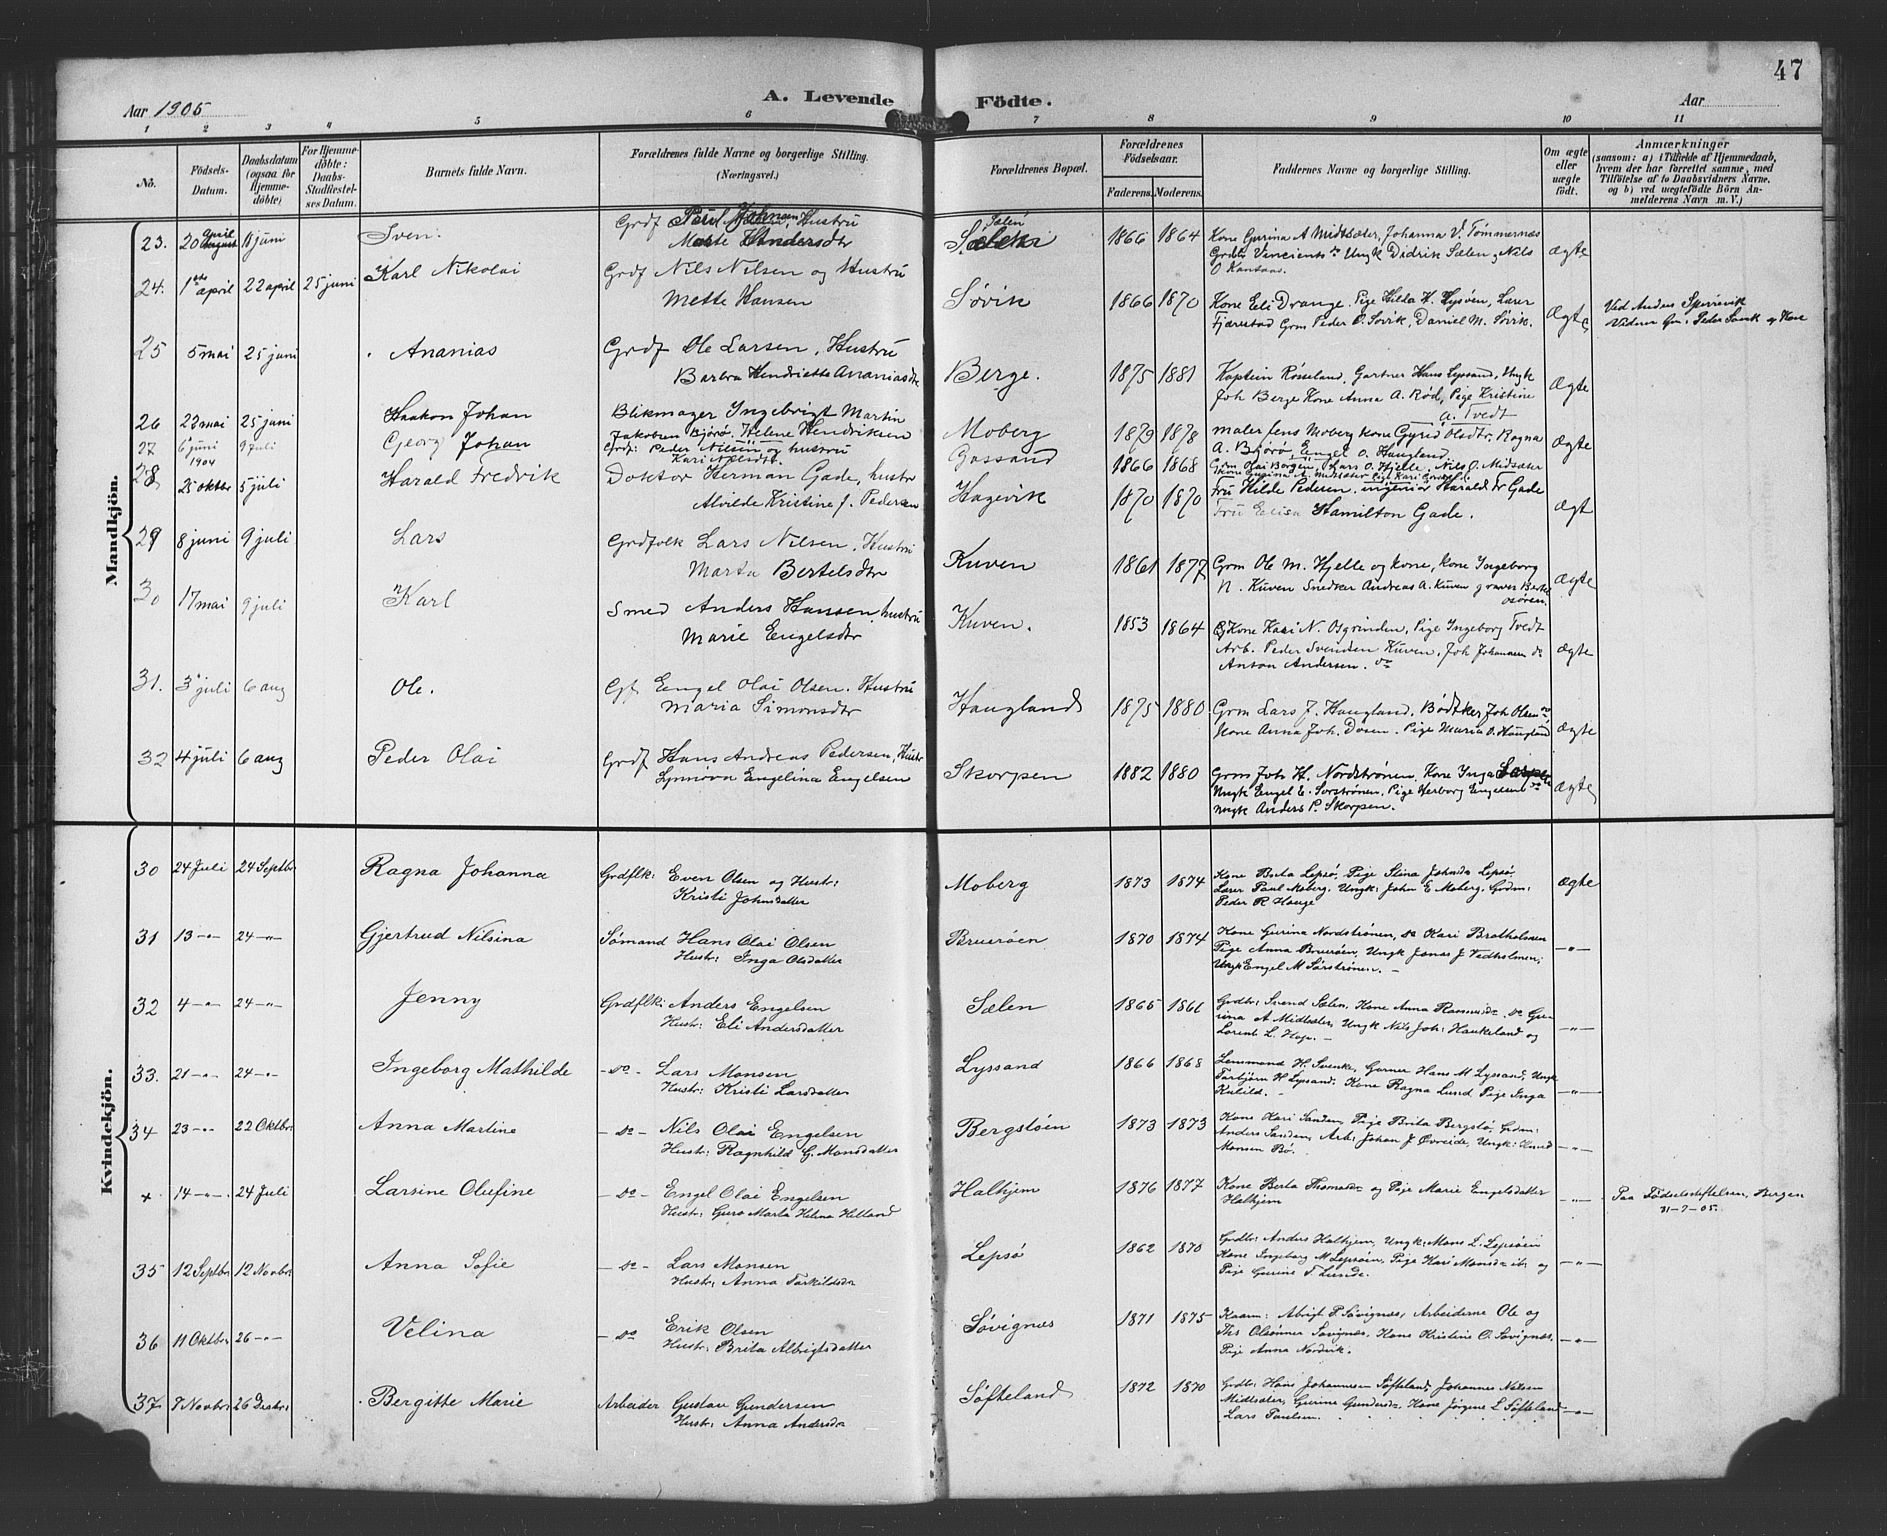 47
Aar 1905
A. Levende Födte.
Aar
1 2 3 4 5 6 7 8 9 10 11
No.
Födsels-Datum.
Daabsdatum (ogsaa for Hjemme-döbte)
For Hjemme-döbte: Daabs-Stadfæstel-ses Datum.
Barnets fulde Navn.
Forældrenes fulde Navne og borgerlige Stilling. (Næringsvei.)
Forældrenes Bopæl.
Forældrenes Födselsaar.
Faderens. Moderens.
Faddernes Navne og borgerlige Stilling.
Om ægte eller uægte födt.
Anmærkninger
(saasom: a) i Tilfælde af Hjemmedaab, hvem der har forrettet samme, med Tilföielse af to Daabsvidners Navne, og b) ved uegtefödte Börn An-melderens Navn m. V.)
Mandkjön.
23. 20 april 18 juni Sven. Grdf Johnsen, Hustru
Marte Andersdtr Sælen 1866 1864 Kone Gurina A Midtsæter, Johanna V. Tömmernæs
Ungk Didrik Sælen, Nils ægte
24. 1ste april 22 april 25 juni Karl Nikolai Grdf Nils Nilsen og Hustru
Mette Hansen Søvik 1866 1870 Kone Eli Drange. Pige Hilda H. Lysøen, Lærer
Fjærestad Grm Peder O. Søvik, Daniel M. Søvik. Ægte Ved Anders
25 5 mai 25 juni Ananias Grdf Ole Larsen, Hustru
Barbra Henriette Ananiasdtr Berge. 1875 1881 Kaptein Røsseland, Gartner Hans Lyssand, Ungk
Joh Berge Kone Anna A. Rød, Pige Kristine
A. Tvedt Ægte
26 22 mai 25 juni Haakon Johan Blikmager Ingebrigt Martin
Jakobsen Bjørø. Helene Hendriksen Moberg 1879 1878 maler Jens Moberg kone Gyrid Olsdtr, Ragna
A. Bjørø, Engel O. Haugland Ægte
27 6 juni 9 juli Georg Johan Grdf: Peder Nilsen og hustru
Kari 1866 1868 Grm Olai Borgen, Lars O. Hjelle, Nils O. Midsæter
Kone Gurina A. Midtsæter
28 1904
25 oktbr 5 juli Harald Fredrik Doktor Herman Gade, hustr
Alvilde Kristine f. Pedersen Hagevik 1870 1870 Fru Hilde Pedersen. ingeniør Harald Fr Gade
Fru Elisa Hamilton Gade. Ægt
29 8 juni 9 juli Lars Grdfolk Lars Nilsen. Hustru
Marta Bertelsdtr Kuven 1861 1877 Grm Ole M. Hjelle og kone, kone Ingeborg
N. Kuven Snedker Andreas A. Kuven graver Bertel
Osøren. Ægte
30 17 mai 9 juli Karl Smed Anders Hansen, hustru
Marie Engelsdtr Kuven. 1853 1864 Kone Kari N. Osgrinden, Pige Ingeborg Tvedt
Arb. Peder Svendsen Kuven, Joh Johannesen do
Anton Andersen. do Ægte
31. 3 juli 6 aug Ole. Engel Olai Olsen. Hustru
Maria Simonsdtr Haugland 1875 1880 Grm Lars J. Haugland, Bødtker Joh Olsen do
Kone Anna Joh. Dosen. Pige Maria O. Haugland Ægte
32 4 juli 6 aug Peder Olai Grdf Hans Andreas Pedersen, Hustr
Synnöva Engelina Engelsen Skorpen 1882 1880 Grm Johs H. Nordstrønen. Kone Inga
Ungk Engel E. Sørstrønen, Pige Herborg Engelsen do
Ungk Anders P. Skorpen. Ægte
Kvindekjön.
30 24 Juli 24 Septbr Ragna Johanna Grdflk: Even Olsen og Hustr:
Kristi Johnsdatter Moberg 1873 1874 Kone Berta Lepsø, Pige Stina Johnsd. Lepsø,
Lærer Paul Moberg. Ungk: John E Moberg. Grdm:
Peder R Hauge Ægte
31 13 -"- 24 -"- Gjertrud Nilsina Sømand Hans Olai Olsen
Hustr: Inga Olsdatter Bruerøen 1870 1874 Kone Gurina Nordstrønen, do Kari Bratholmen
Pige Anna Bruerøen, Ungk Jonas J Vedholmen;
Ungk Engel M Sørstrønen. - -"-
32 4 -"- 24 -"- Jenny Grdflk: Anders Engelsen
Hustr: Eli Andersdatter Sælen 1865 1861 Grdbr: Svend Sælen, Kone Anna Rasmusdr. do Gu-
rina A Midtsæter, Ungk Nils Joh: Haukeland og
Lorents L. Hage. - -"-
33. 21 -"- 24 -"- Ingeborg Mathilde -do- Lars Monsen
Hustr: Kristi Larsdatter Lyssand 1866 1868 Lensmand H. Svenke, Garner Hans M Lyssand, Ungk
Torbjørn H Lyssand. Kone Ragna Lund Pige Inga
Kulild. - -"-
34 23 -"- 22 Oktbr: Anna Martine -do- Nils Olai Engelsen
Hustr: Ragnhild G. Monsdatter Bergstøen 1873 1873 Kone Kari Sanden, Pige Brita Bergstø, Grdm:
Anders Sanden, Arb: Johan J Øvreide, Ungk: Knud
Monsen Bø. -"-
+ 14 -"- 24 Juli Larsine Olufine -do- Engel Olai Engelsen
Hustr: Guro Marta Helina Helland Halhjem 1876 1877 Kone Berta Thomasdr og Pige Marie Engelsdatter
Halhjem -"- Paa Födselsstiftelsen, Bergen
31-7-05.
35 12 Septbr: 12 Novbr: Anna Sofie -do- Lars Monsen
Hustr: Anna Torkildsdr Lepsø 1862 1870 Grdbr: Anders Halhjem, Ungk: Mons L. Lepsøen
Kone Ingeborg M Lepsøen, Pige Kari Monsdr ib. og
Pige Gurine T. Lunde. -"-
36 11 Oktbr: 26 -"- Velina -do- Erik Olsen
Hustr: Brita Albrigtsdatter Søvignæs 1871 1875 Kaarm: Abrigt P Søvignæs, Arbeiderne Ole og
Ths Olsønner Søvignæs, Kone Kristine O. Søvignæs.
Pige Anna Nordvik. -"-
37 7 Novbr: 26 Desbr: Bergitte Marie Arbeider Gustav Gundersen
Hustr: Anna Andersdr Søfteland 1872 1870 Grdbr: Hans Johannesen Søfteland, Johannes Nilsen
Midtsæter, Gurine Gundersdr, Kone Jørgine L Søfteland
Lars Paulsen. -"-